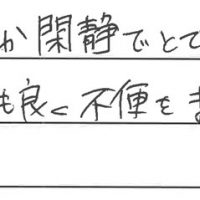 か閑静でとて
も良く不便をま